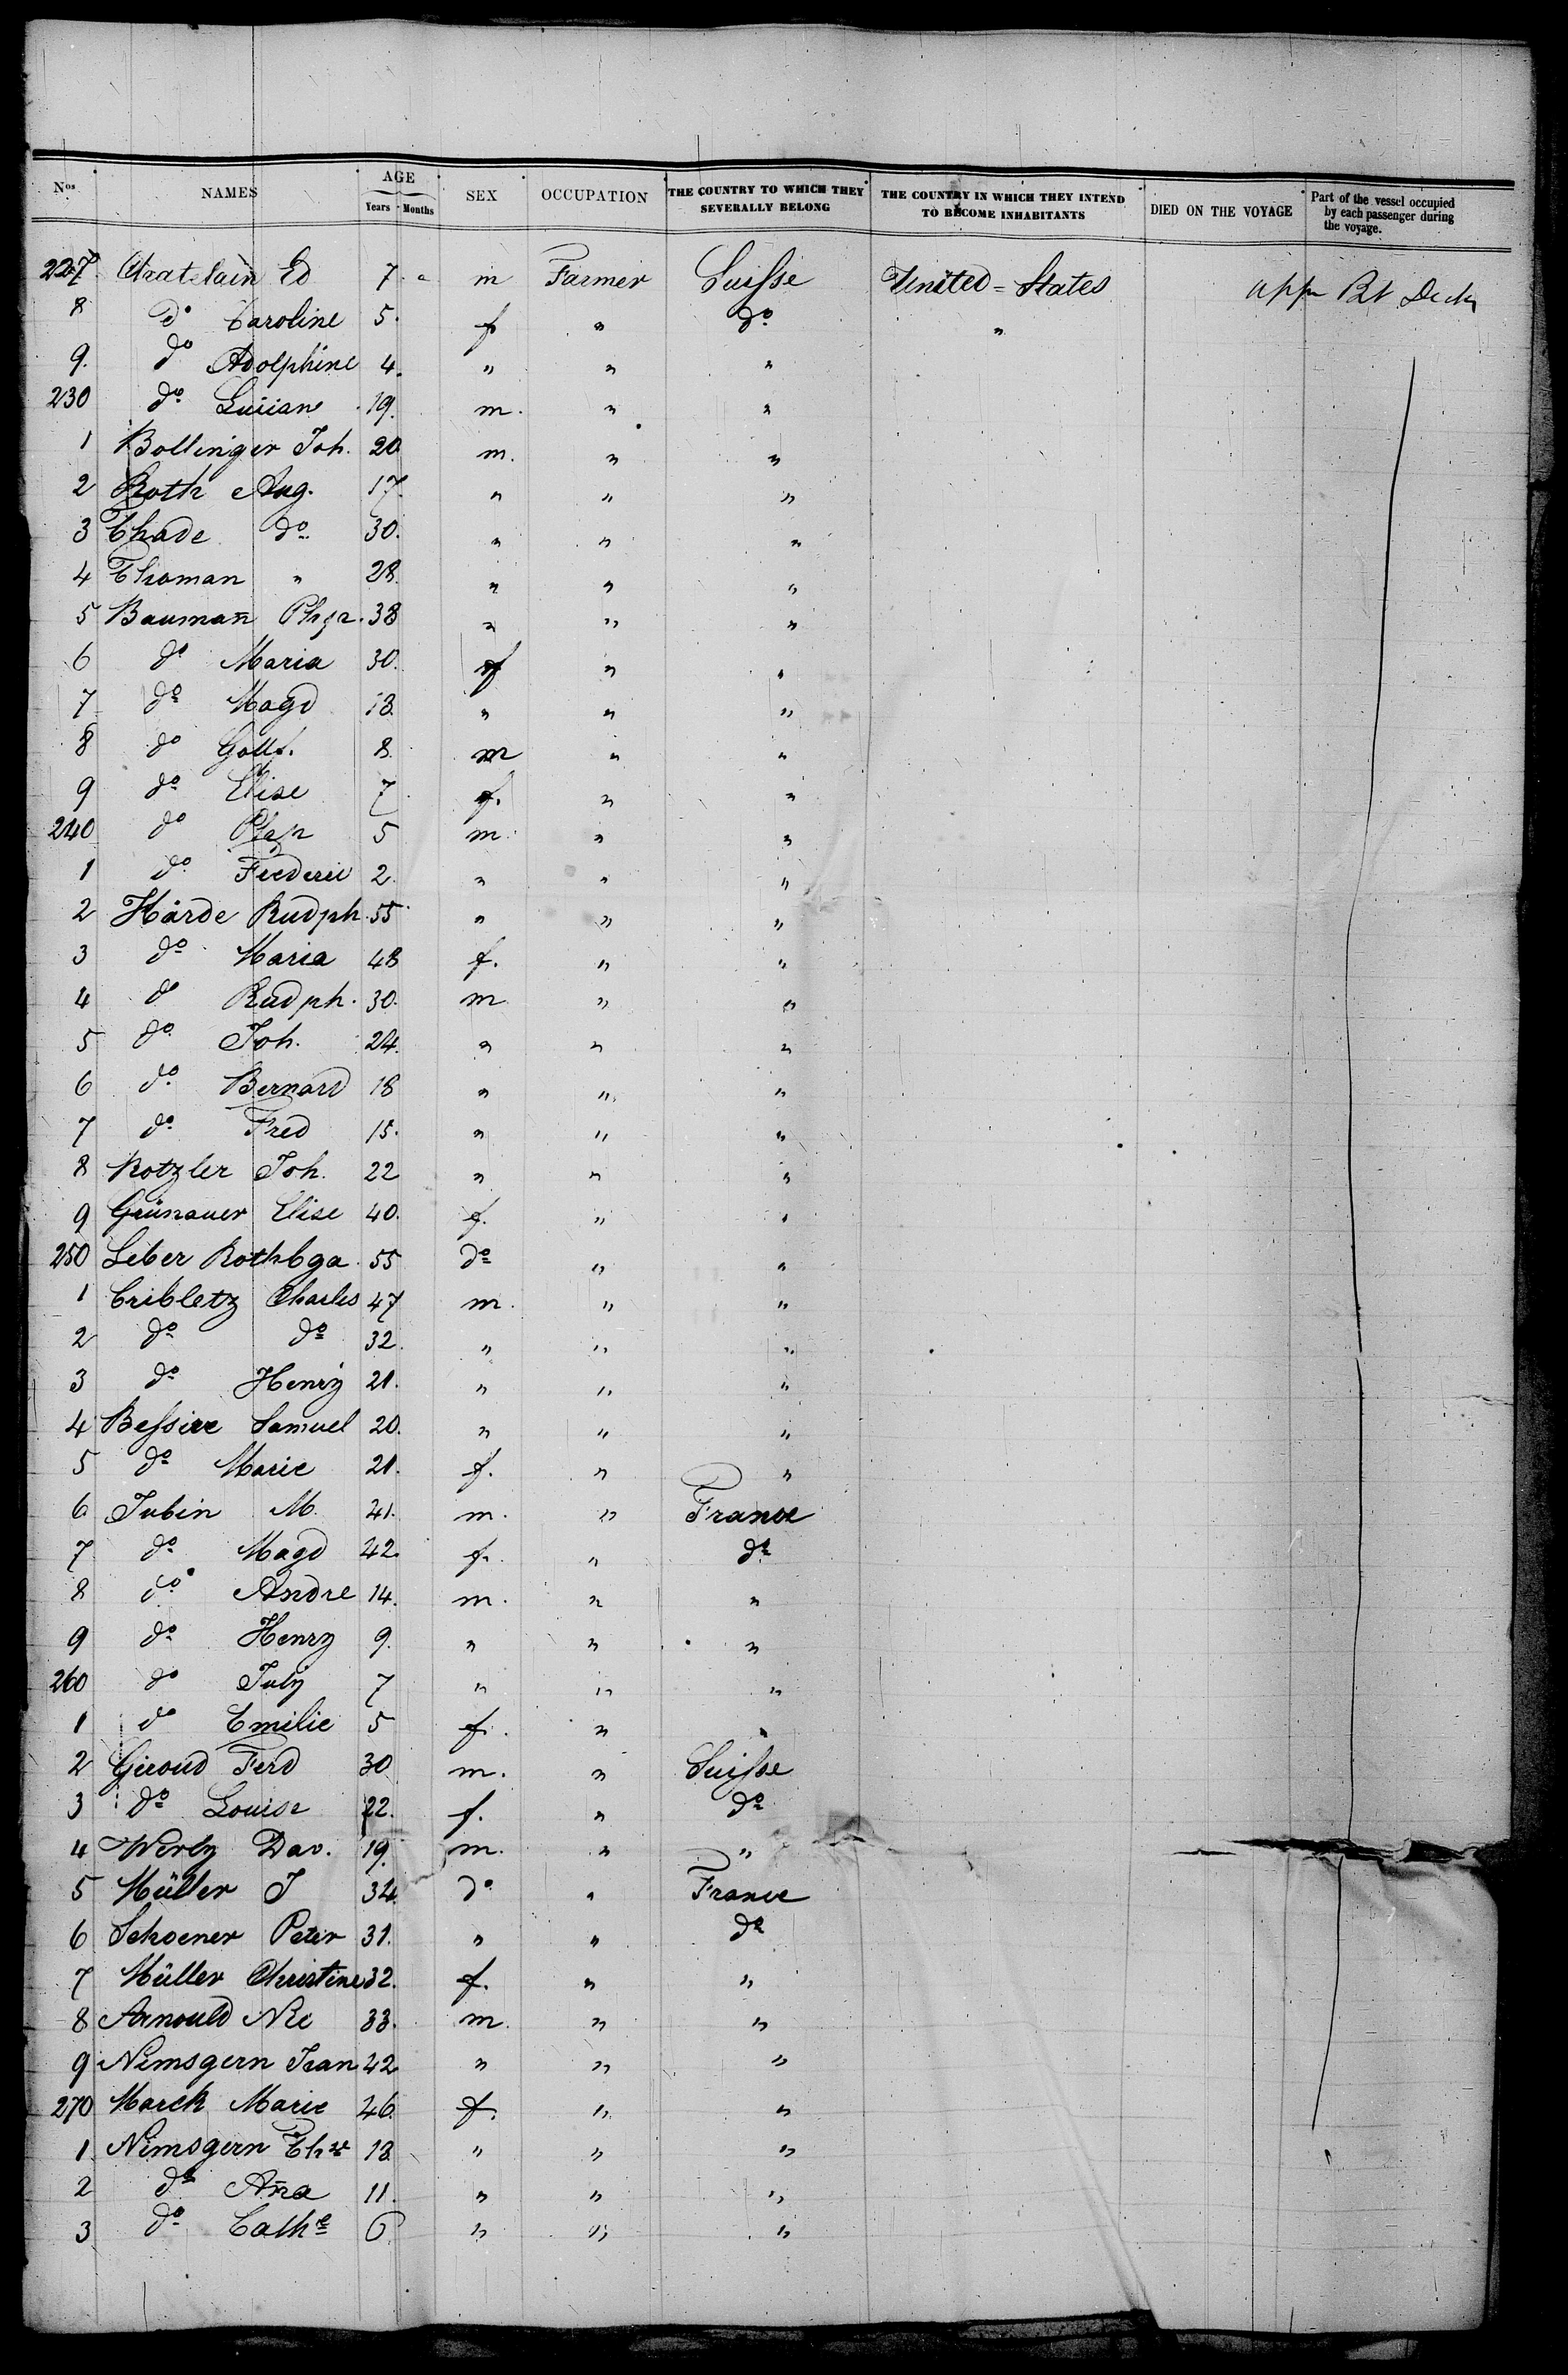 Nos. NAMES AGE Years Months SEX OCCUPATION THE COUNTRY TO WHICH THEY SEVERALLY BELONG THE COUNTRY IN WHICH THEY INTEND TO BECOME INHABITANTS DIED ON THE VOYAGE Part of the vessel occupied by each passenger during the voyage.
227 Chatelain Ed 7 " m Farmer Suisse United = States upp Deck
8 do Caroline 5. f " do "
9. do Adolphine 4. " " "
230 do 19. m. " "
1 Bollinger Joh. 20 m. " "
2 Roth Aug. 17. " " "
3 Thade do 30. " " "
4 Thoman " 28. " " "
5 Baumañ 38 " " "
6 do Maria 30. f " "
7 do Magd 13. " " "
8 do Gottf. 8 m " "
9 do Elise 7 f. " "
240 do 5 m. " "
1 do Frederic 2. " " "
2 Hårde Rudph. 55 " " "
3 do Maria 48 f. " "
4 do Rudph. 30. m " "
5 do Joh. 24. " " "
6 do Bernard 18 " " "
7 do Fred 15. " " "
8 Rotzler Joh. 22 " " "
9 Grünauer Elise 40. f. " "
250 Leber 55 do " "
1 Cribletz Charles 47 m. " "
2 do do 32. " " "
3 do Henry 21. " " "
4 Bessire Samuel 20. " " "
5 do Marie 21. f. " "
6 Jubin M. 41. m. " France
7 do Magd 42. f. " do
8 do Andre 14. m. " "
9 do Henry 9. " " "
260 do July 7 " " "
1 do Emilie 5 f. " "
2 Giroud Ferd 30 m. " Suisse
3 do Louise 22. f. " do
4 Werly Dav. 19. m. " "
5 Müller J 34. do " France
6 Schoener Peter 31. " " do
7 Müller Christine 32. f. " "
8 Arnould Nic 33. m. " "
9 Nimsgern Jean 42 " " "
270 Marck Marie 46. f. " "
1. Nimsgern 18. " " "
2 do Aña 11. " " "
3 do Cathe 6 " " "